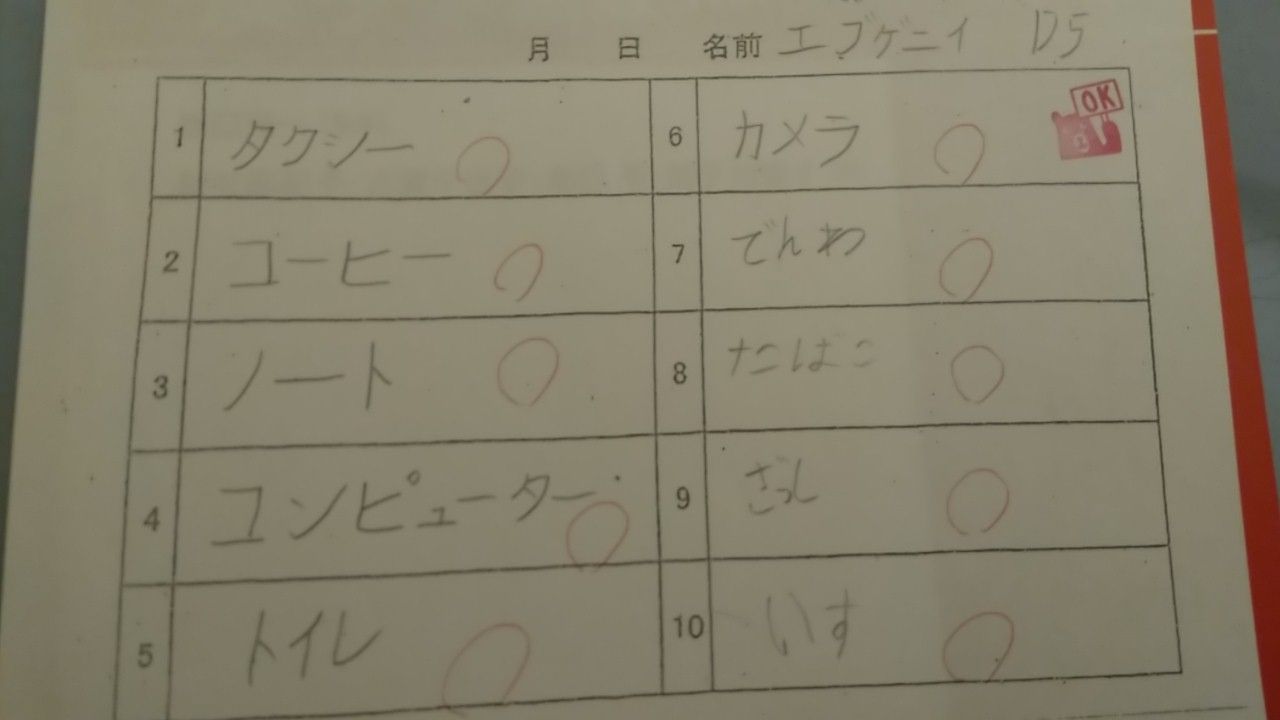 月 日 名前 エブゲニイ D5
1 タクシー
2 コーヒー
3 ノート
4 コンピューター
5 トイレ
6 カメラ
OK
7 でんわ
8 たばこ
9 ざっし
10 いす